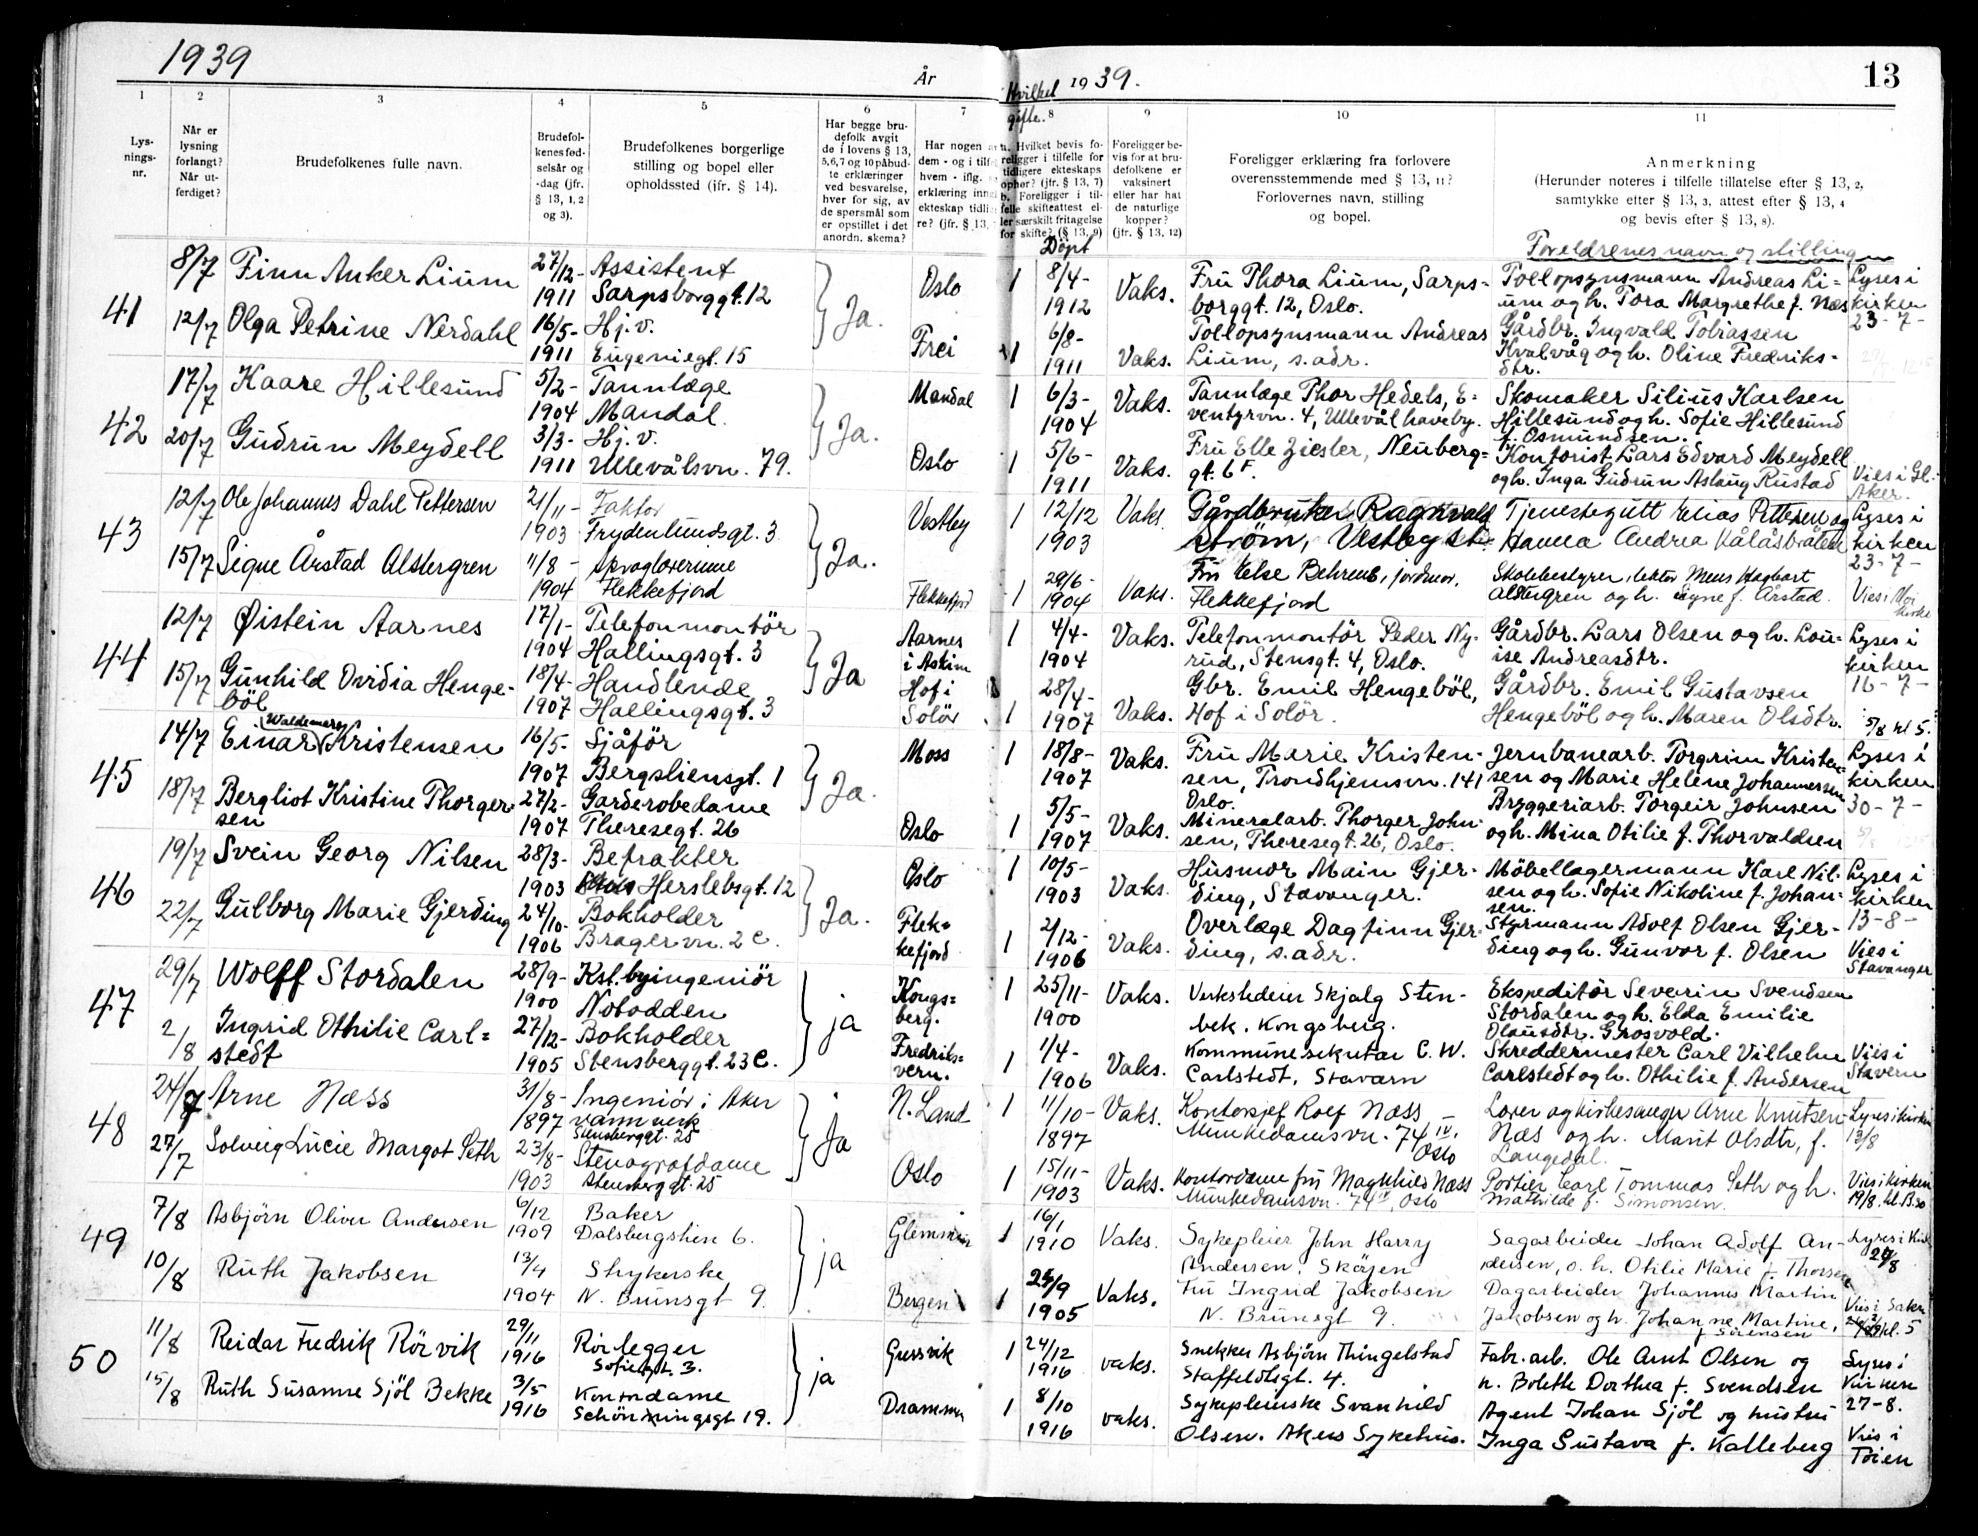 1939
År
1939.
13
Hvilket gifte.
1
2
3
4
5
6
7
8
9
10
11
Lysnings-nr.
Når er lysning forlangt? Når utferdiget?
Brudefolkenes fulle navn.
Brudefolkenes fødselsår og -dag (jfr. § 13, 1, 2 og 3).
Brudefolkenes borgerlige stilling og bopel eller opholdssted (jfr. § 14).
Har begge brudefolk avgit de i lovens § 13, 5, 6, 7 og 10 påbudte erklæringer ved besvarelse, hver for sig, av de spørsmål som er opstillet i det anordn. skema?
Foreligger bevis for at brudefolkene er vaksinert eller har hat de naturlige kopper? (jfr. § 13, 12)
Foreligger erklæring fra forlovere overensstemmende med § 13, 11? Forlovernes navn, stilling og bopel.
Anmerkning
(Herunder noteres i tilfelle tillatelse efter § 13, 2, samtykke efter § 13, 3, attest efter § 13, 4 og bevis efter § 13, 8).
Döpt
Foreldrenes navn og stilling
41
8/7 Finn Anker Lium 27/12-1911 Assistent Sarpsborggt. 12 Ja. Oslo 1 8/4-1912 Vaks. Fru Thora Lium, Sarpsborggt. 12, Oslo. Tollopsynsmann Andreas Lium og h. Tora Margrethe f. Næs Lyses i kirken 23-7-
12/7 Olga Petrine Nerdahl 16/5-1911 Hj. v. Eugeniegt. 15 Frei 1 6/8-1911 Vaks. Tollopsynsmann Andreas Lium, s. adr. Gårdbr. Ingvald Tobiassen Kvalvåg og h. Oline Fredriksdtr.
42
17/7 Kaare Hillesund 5/2-1904 Tannlæge Mandal. Ja. Mandal 1 6/3-1904 Vaks. Tannlæge Thor Hedels, Eventyrvn. 4, Ullevål haveby. Skomaker Silius Karlsen Hillesund og h. Sofie Hillesund f. Osmundsen.
20/7 Gudrun Meydell 3/3-1911 Hj. v. Ullevålsvn. 79. Oslo 1 5/6-1911 Vaks. Fru Elle Ziesler, Neuberggt. 6F. Kontorist Lars Edvard Meydell og h. Inga Gudrun Aslaug Rustad Vies i Gl. Aker.
43
12/7 Ole Johannes Dahl Pettersen 21/11-1903 Faktor Frydenlundsgt. 3 Ja. Vestby 1 12/12 1903 Vaks. Gårdbruker Ragnvald Strøm, Vestby st. Tjenestegutt Elias Pettersen og Hanna Andrea Kålåsbråten Lyses i kirken 23-7-
15/7 Signe Årstad Alstergren 11/8-1904 Språglærerinne Flekkefjord Flekkefjord 1 29/6-1904 Vaks. Fru Else Behrens, jordmor, Flekkefjord Skolebestyrer, lektor Mens Hagbart Alstergren og h. Signe f. Årstad. Vies i
44
12/7 Øistein Aarnes 17/1-1904 Telefonmontör Hallingsgt. 3 Ja Aarnes i Askim 1 4/4-1904 Vaks. Telefonmontör Peder Nyrud, Stensgt. 4, Oslo. Gårdbr. Lars Olsen og h. Louise Andreasdtr. Lyses i kirken 16-7-
15/7 Gunhild Ovidia Hengeböl 18/4-1907 Handlende Hallingsgt. 3 Hof i Solör 1 28/4-1907 Vaks. Gbr. Emil Hengeböl, Hof i Solör. Gårdbr. Emil Gustavsen Hengeböl og h. Maren Olsdtr. 5/8 kl 5.
45
14/7 Einar Waldemar Kristensen 16/5-1907 Sjåför Bergsliensgt. 1 Ja. Moss 1 18/8-1907 Vaks. Fru Marie Kristensen, Trondhjemsvn. 141 Oslo. Jernbanearb. Torgrim Kristensen og Marie Helene Johannessen Lyses i kirken 30-7-
18/7 Bergliot Kristine Thorgersen 27/2-1907 Garderobedame Theresegt. 26 Oslo 1 5/5-1907 Vaks. Mineralarb. Thorger Johnsen, Theresegt. 26, Oslo. Bryggeriarb. Torgeir Johnsen og h. Mina Otilie f. Thorvaldsen
46
19/7 Svein Georg Nilsen 28/3-1903 Befrakter Herslebsgt. 12 Ja. Oslo 1 10/5-1903 Vaks. Husmor Main Gjerding, Stavanger. Möbellagermann Karl Nilsen og h. Sofie Nikoline f. Johansen. Lyses i kirken 13-8-
22/7 Gulborg Marie Gjerding 24/10-1906 Bokholder Bragervn. 2 c. Flekkefjord 1 2/12-1906 Vaks. Overlæge Dagfinn Gjerding, s. adr. Styrmann Adolf Olsen Gjerding og h. Gunvor f. Olsen Vies i Stavanger
47
29/7 Wolff Stordalen 28/9-1900 Kst. byingeniör Notodden ja Kongsberg. 1 25/11-1900 Vaks. Verksleder Skjalg Stenbek. Kongsberg. Ekspeditör Severin Svendsen Stordalen og h. Elda Emilie Olausdtr. Grosvold.
2/8 Ingrid Othilie Carlstedt 27/12-1905 Bokholder Stensberggt. 23 C. Fredriksvern. 1 1/4-1906 Vaks. Kommunesekretær C. W. Carlstedt, Stavern Skreddermester Carl Vilhelm Carlstedt og h. Othilie f. Andersen Vies i Stavern
48
24/7 Arne Næss 31/8-1897 Ingeniör i Aker vannverk Stensberggt. 25 Ja N. Land 1 11/10-1897 Vaks. Kontorsjef Rolf Næss Munkedamsvn. 74 IV. Oslo Lærer og kirkesanger Arne Knutsen Næs og h. Marit Olsdtr, f. Langedal. Lyses i kirken 13/8
27/7 Solveig Lucie Margot Seth 23/8-1903 Stenografdame Stensberggt. 25 Oslo 1 15/11-1903 Vaks. Kontordame fru Magnhild Næss Munkedamsvn. 74 IV, Oslo Portier Carl Tommas Seth og h. Mathilde f. Simonsen. Vies i kirken 19/8. kl.
49
7/8 Asbjörn Oliver Andersen 6/12 1909 Baker Dalsbergstien 6. ja Glemmen 1 16/1 1910 Vaks. Sykepleier John Harry Andersen, Sköyen Sagarbeider Johan Adolf Andersen, o. h. Otilie Marie f. Thorsen Lyses i Kirk 20/8
10/8 Ruth Jakobsen 13/4 1904 Strykerske N. Brunsgt 9. Bergen 1 25/9 1905 Vaks. Fru Ingrid Jakobsen N. Brunsgt 9. Dagarbeider Johannes Martin Jakobsen og h. Johanne Martine, f Sörensen Vies i Sakr. kl. 5
50
11/8 Reidar Fredrik Rörvik 29/11 1916 Rörlegger Sofiesgt. 3. ja Gressvik 1 24/12 1916 vaks. Snekker Asbjörn Thingelstad Staffeldtsgt. 4. Fabr. arb. Ole Arnt Olsen og h. Boleth Dorthea f. Svendsen Lyses i Kirken 27-8.
15/8 Ruth Susanne Sjöl Bekke 3/5 1916 Kontordame Schönningsgt 19. Drammen 1 8/10 1916 vaks. Sykepleierske Svanhild Olsen. Akers Sykehus. Agent Johan Sjöl og hustru Inga Gustava f. Kalleberg Vies i Töien